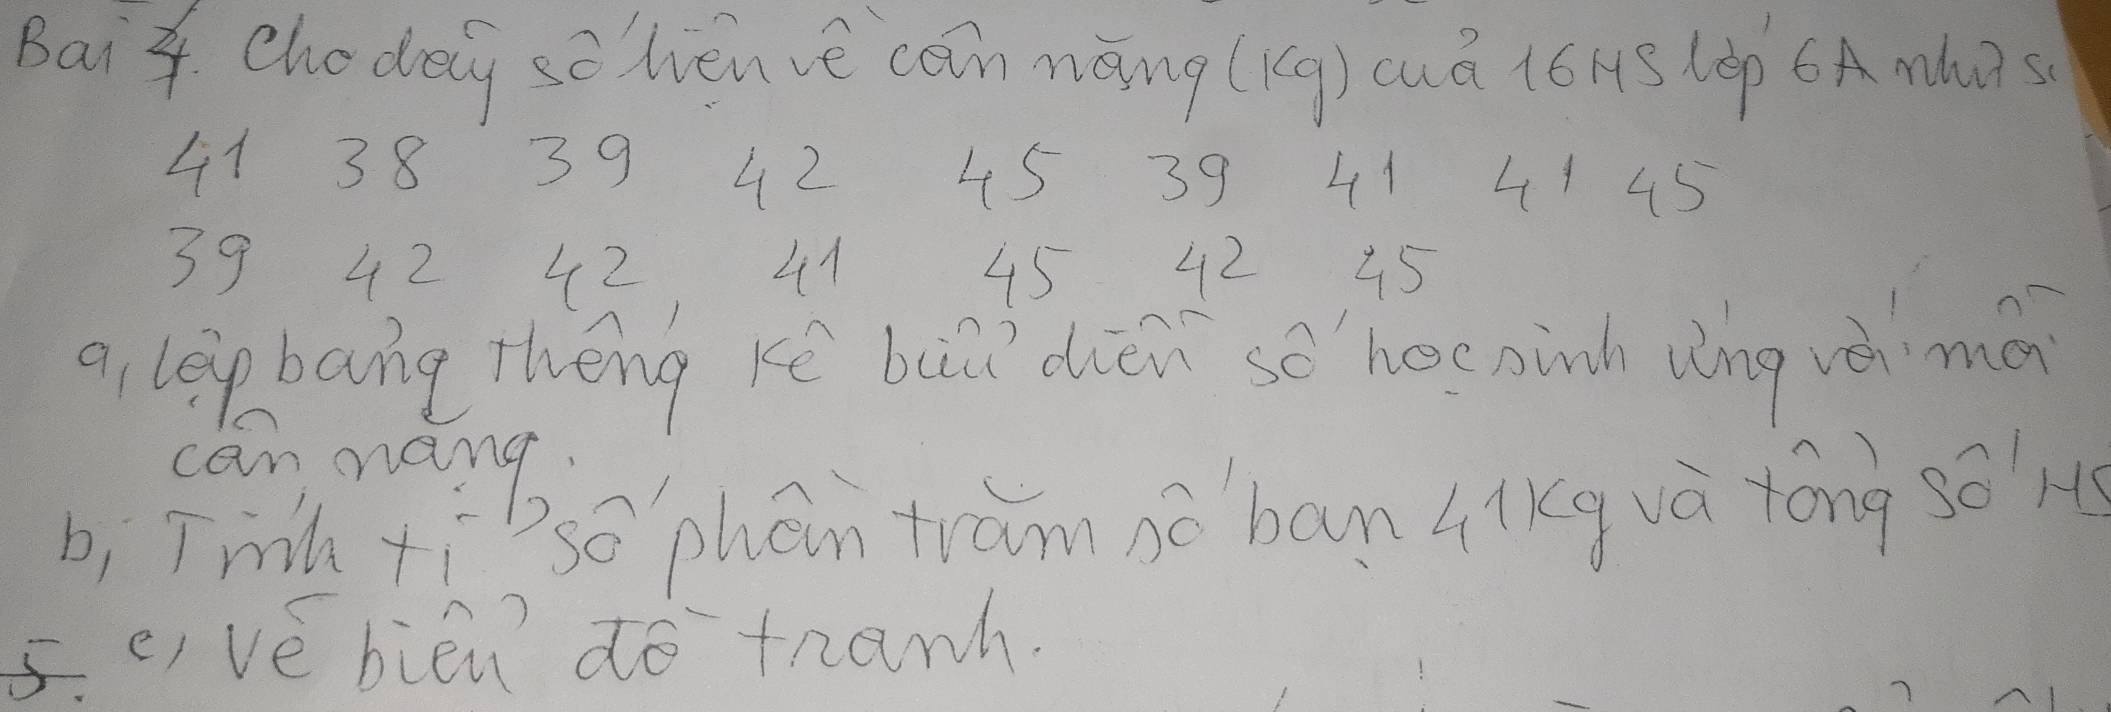 Bài 4. Cho dãy số liệu về cân nặng (Kg) của 16 HS lớp 6A như s
41 38 39 42 45 39 41 41 45
39 42 42, 41 45 42 45
a, lập bảng thống kê biểu diễn số học sinh ứng với mỗi
cân nặng.
b, Tính tỉ số phần trăm số bạn 41Kg và tổng số HS
5. c, vẽ biểu đồ tranh.